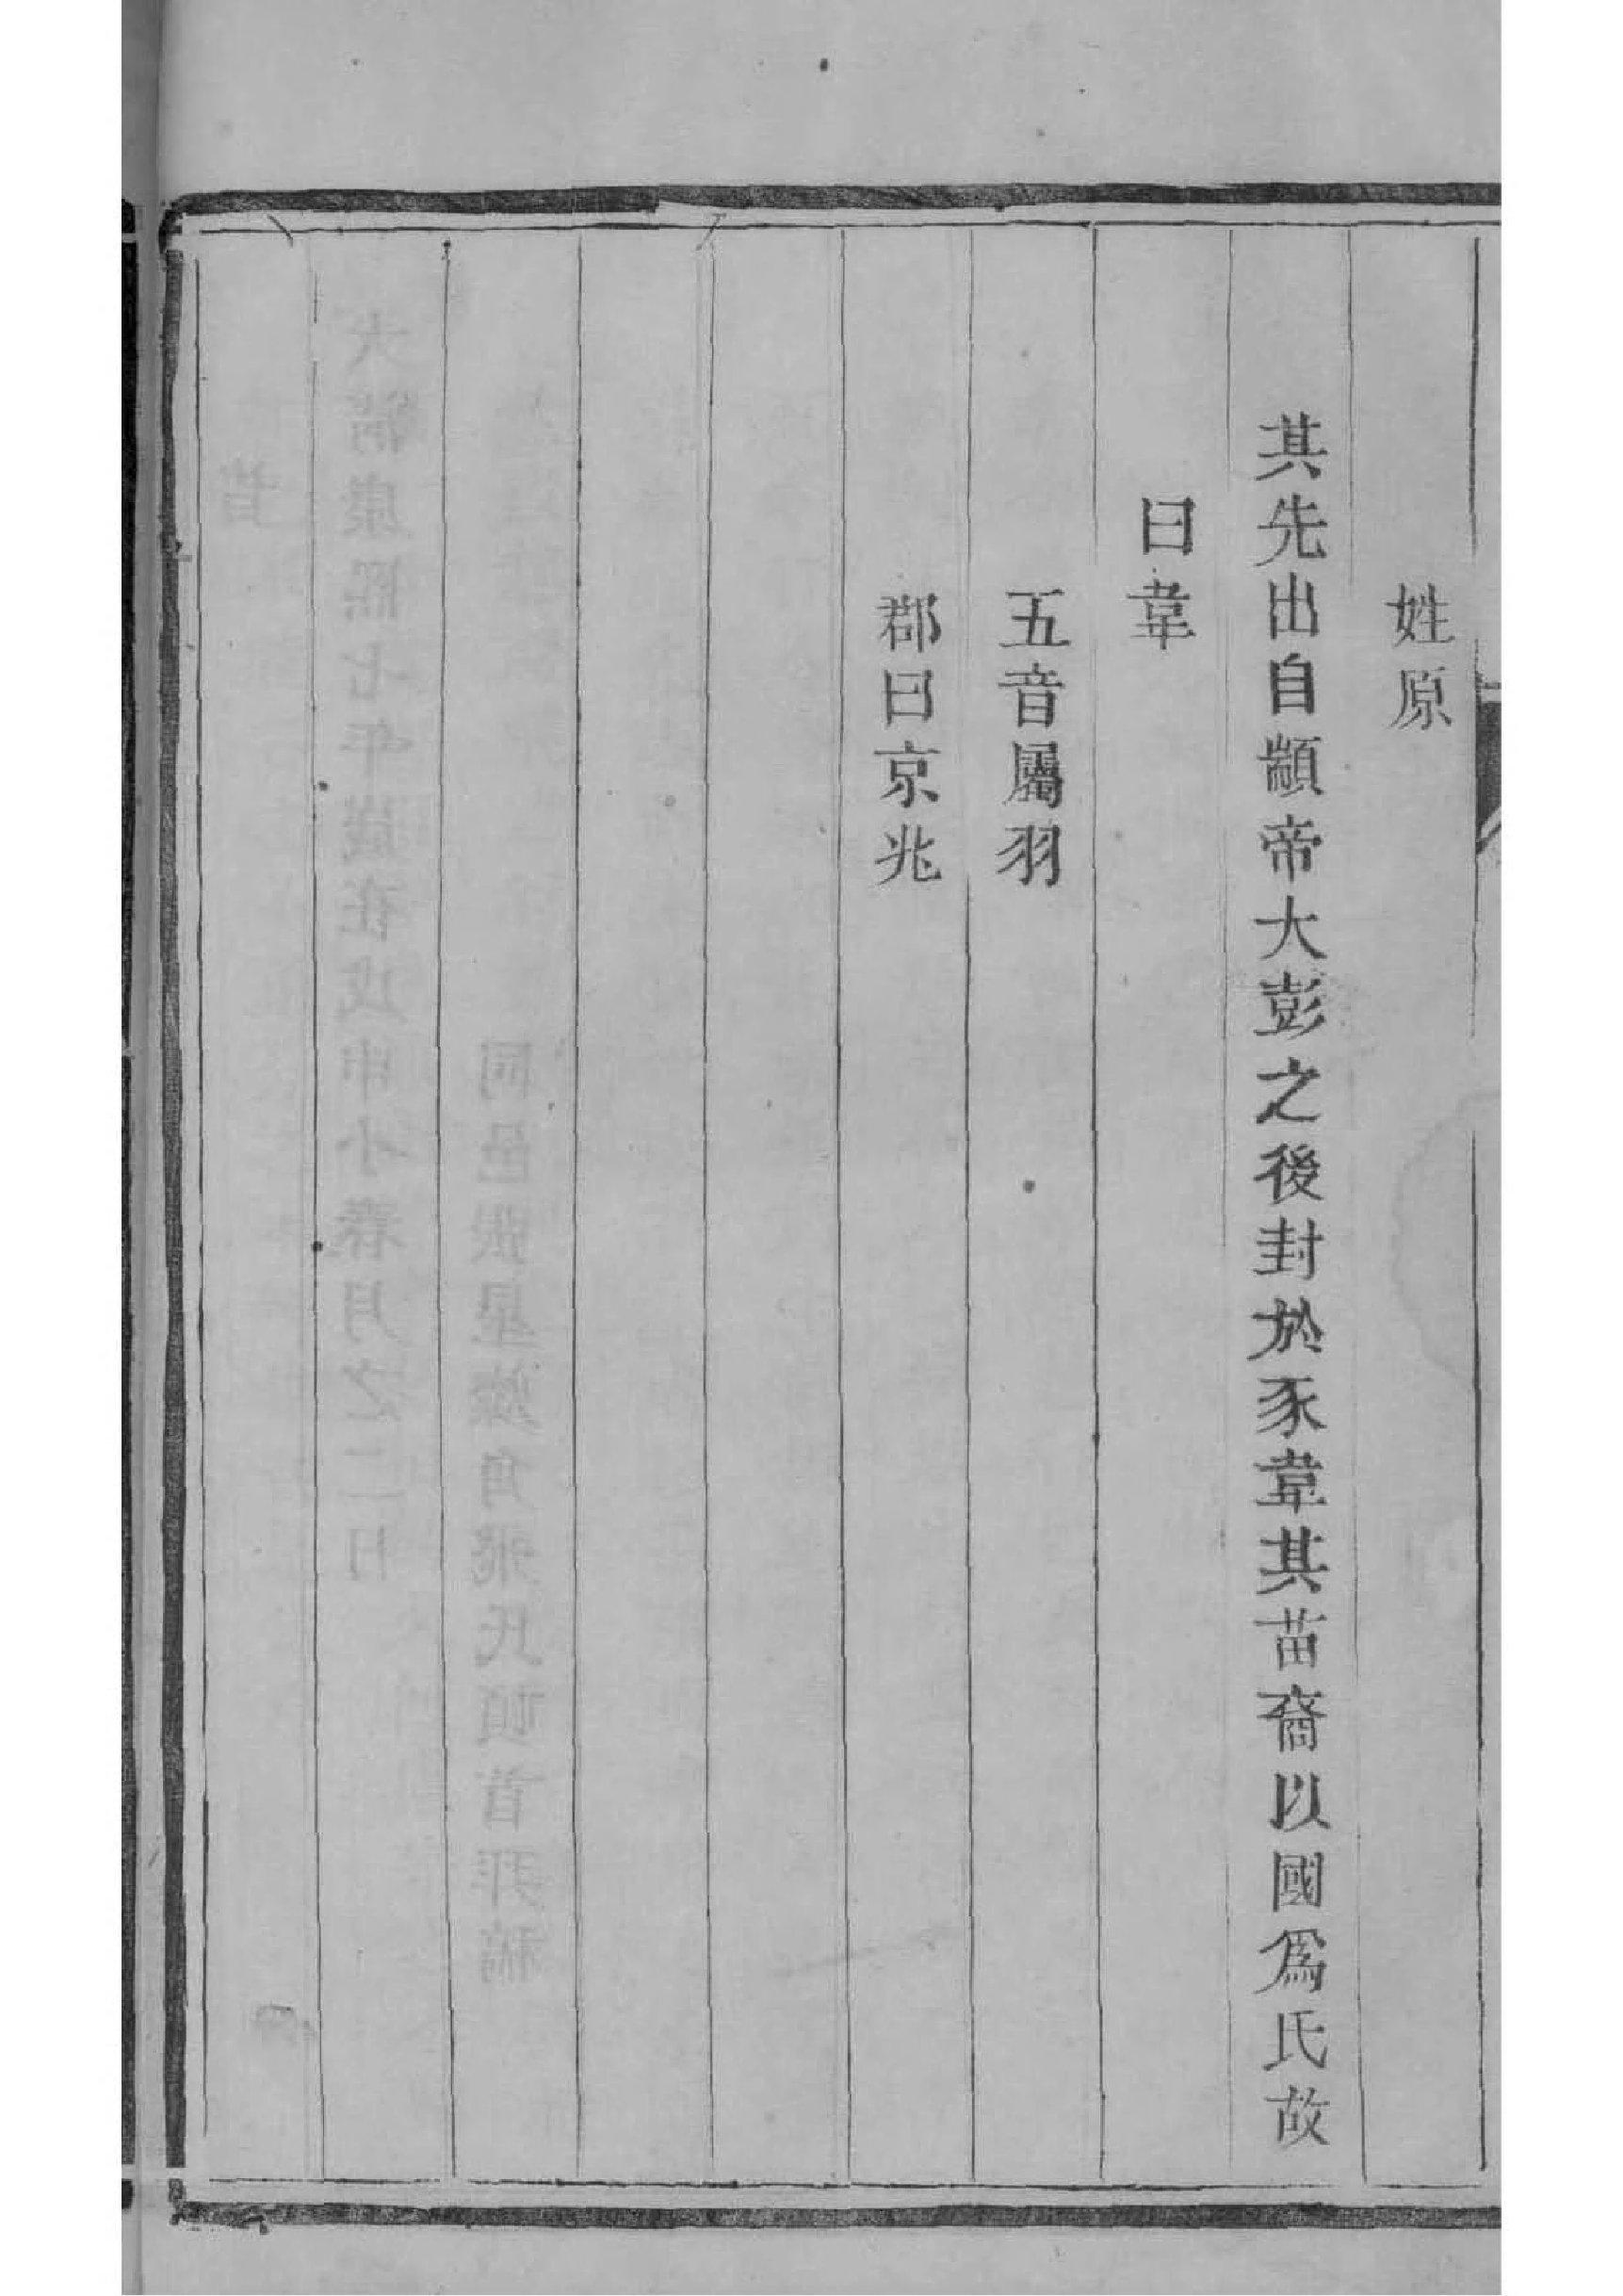 姓原
其先出自顓帝大彭之後封於豕韋其苗裔以國爲氏故
曰韋
五音屬羽
郡曰京兆